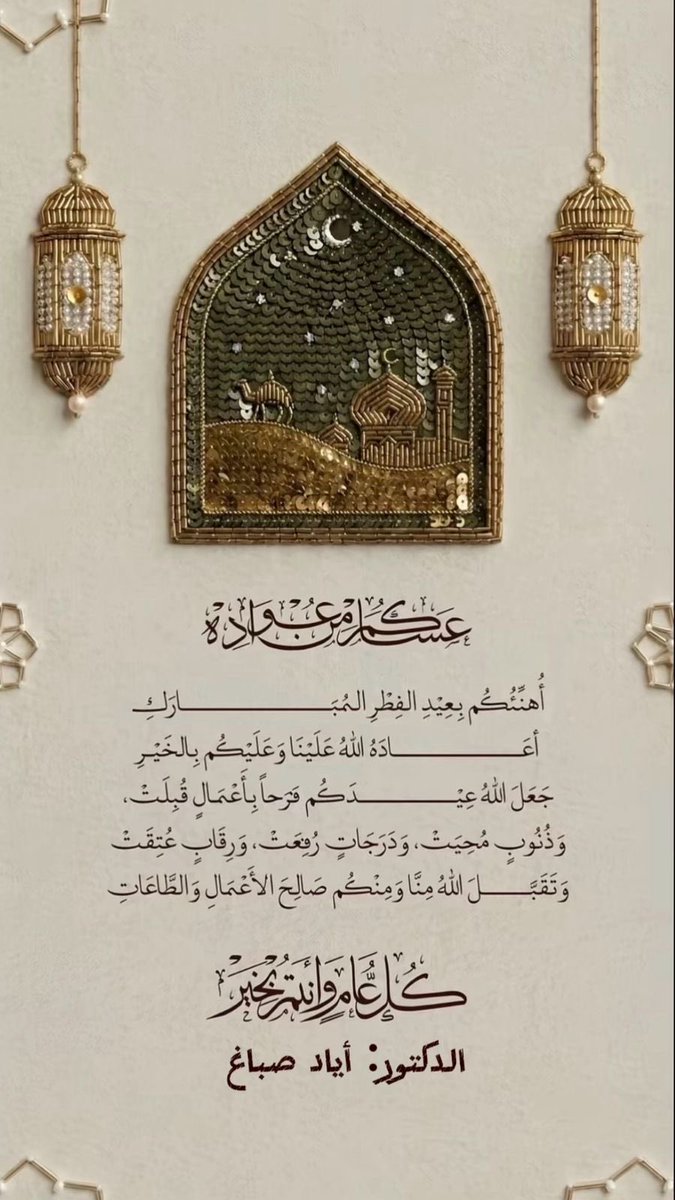 عَسَاكُم مِن عُوَّادِه
أُهَنِّئُكُم بِعِيْدِ الفِطْرِ المُبَـارَكِ
أعَـادَهُ اللهُ عَلَيْنَا وَعَلَيْكُم بِالخَيْرِ
جَعَلَ اللهُ عِيْـدَكُم فَرَحاً بِأَعْمَالٍ قُبِلَتْ،
وَذُنُوبٍ مُحِيَتْ، وَدَرَجَاتٍ رُفِعَتْ، وَرِقَابٍ عُتِقَتْ
وَتَقَبَّـلَ اللهُ مِنَّا وَمِنْكُم صَالِحَ الأَعْمَالِ وَالطَّاعَاتِ
كُلُّ عَامٍ وَأَنْتُم بِخَيْر
الدكتور: أياد صباغ